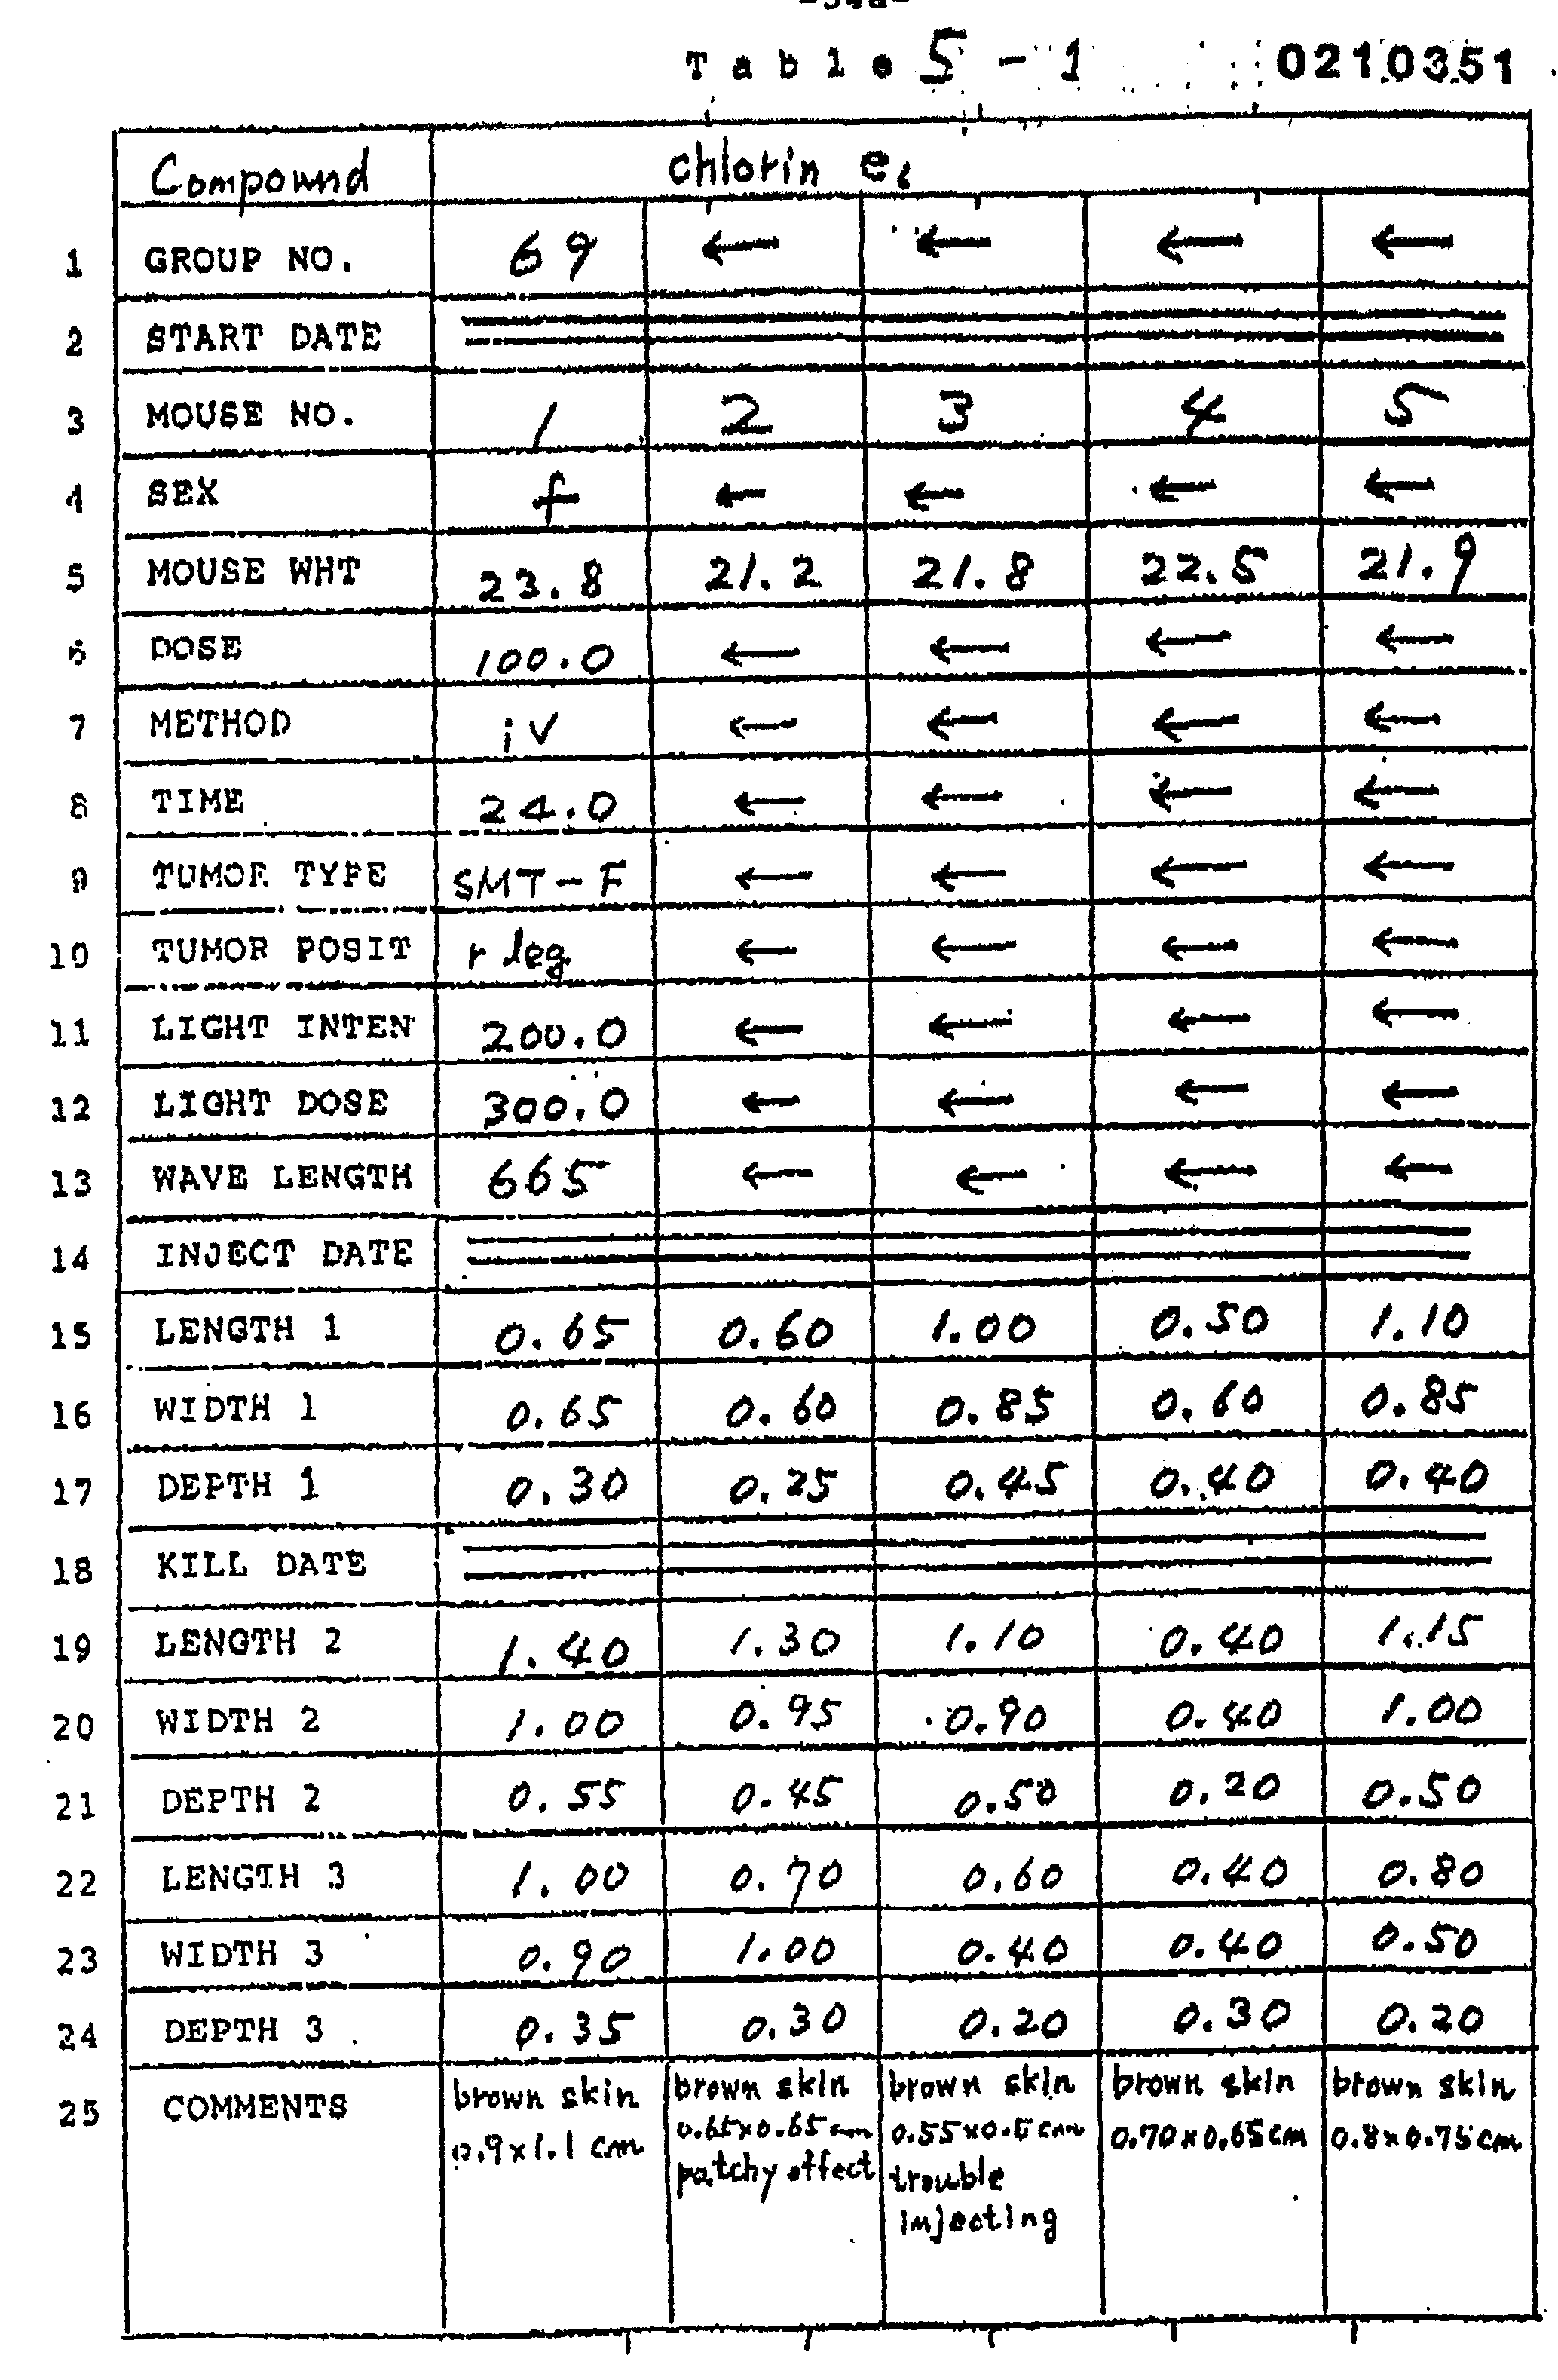 Table 5-1 0210351
Compound chlorin e6
1 GROUP NO. 69 ← ← ← ←
2 START DATE
3 MOUSE NO. 1 2 3 4 5
4 SEX f ← ← ← ←
5 MOUSE WHT 23.8 21.2 21.8 22.5 21.9
6 DOSE 100.0 ← ← ← ←
7 METHOD iv ← ← ← ←
8 TIME 24.0 ← ← ← ←
9 TUMOR TYPE SMT-F ← ← ← ←
10 TUMOR POSIT r leg ← ← ← ←
11 LIGHT INTEN 200.0 ← ← ← ←
12 LIGHT DOSE 300.0 ← ← ← ←
13 WAVE LENGTH 665 ← ← ← ←
14 INJECT DATE
15 LENGTH 1 0.65 0.60 1.00 0.50 1.10
16 WIDTH 1 0.65 0.60 0.85 0.60 0.85
17 DEPTH 1 0.30 0.25 0.45 0.40 0.40
18 KILL DATE
19 LENGTH 2 1.40 1.30 1.10 0.40 1.15
20 WIDTH 2 1.00 0.95 0.90 0.40 1.00
21 DEPTH 2 0.55 0.45 0.50 0.20 0.50
22 LENGTH 3 1.00 0.70 0.60 0.40 0.80
23 WIDTH 3 0.90 1.00 0.40 0.40 0.50
24 DEPTH 3 0.35 0.30 0.20 0.30 0.20
25 COMMENTS brown skin brown skin brown skin brown skin brown skin
0.9x1.1 cm 0.65x0.65 cm 0.55x0.5 cm 0.70x0.65cm 0.8x0.75cm
patchy effect trouble
injecting